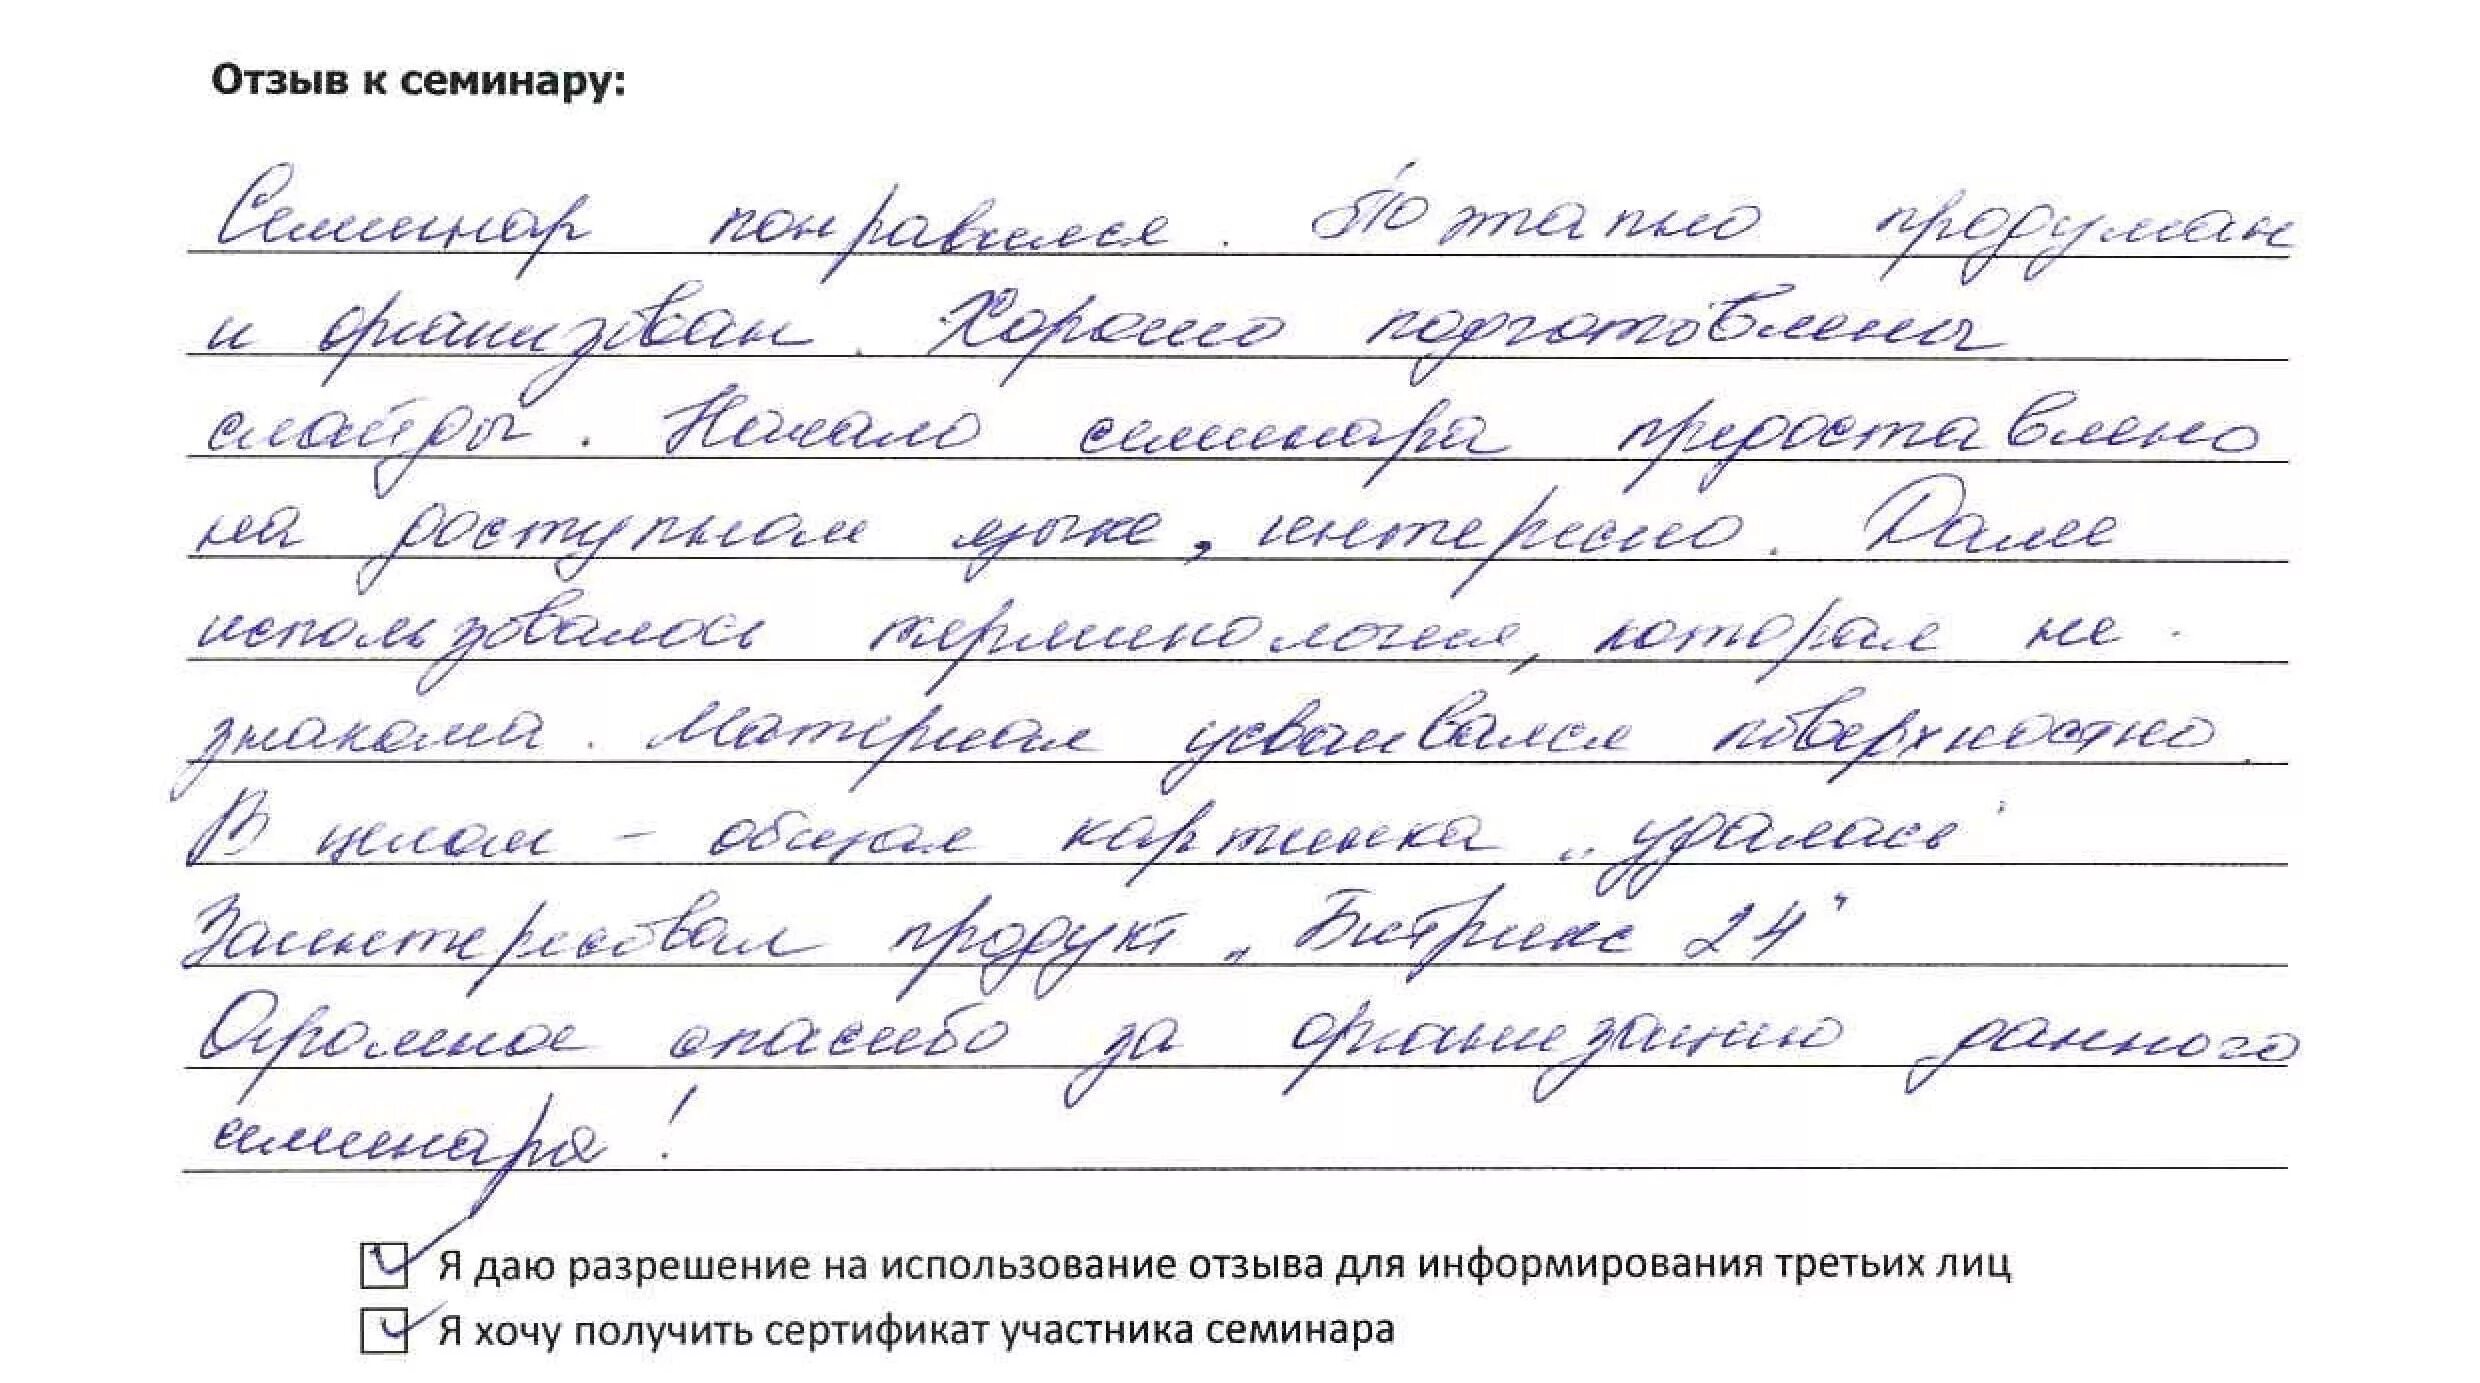 Отзыв к семинару:
Семинар понравился. Поэтапно продуман
и организован. Хорошо подготовлены
слайды. Начало семинара предоставлено
на доступном языке, интересно. Далее
использовалась терминология, которая не
знакома. Материал усваивался поверхностно.
В целом – общая картинка „удалась"
Заинтересовал продукт „Битрикс 24"
Огромное спасибо за организацию данного
семинара!
Я даю разрешение на использование отзыва для информирования третьих лиц
Я хочу получить сертификат участника семинара